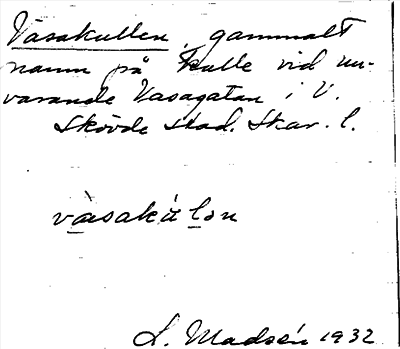 Vasakullen, gammalt
namn på kulle vid nu-
varande Vasagatan i V.
Skövde stad. Skar. l.
L. Madsén 1932